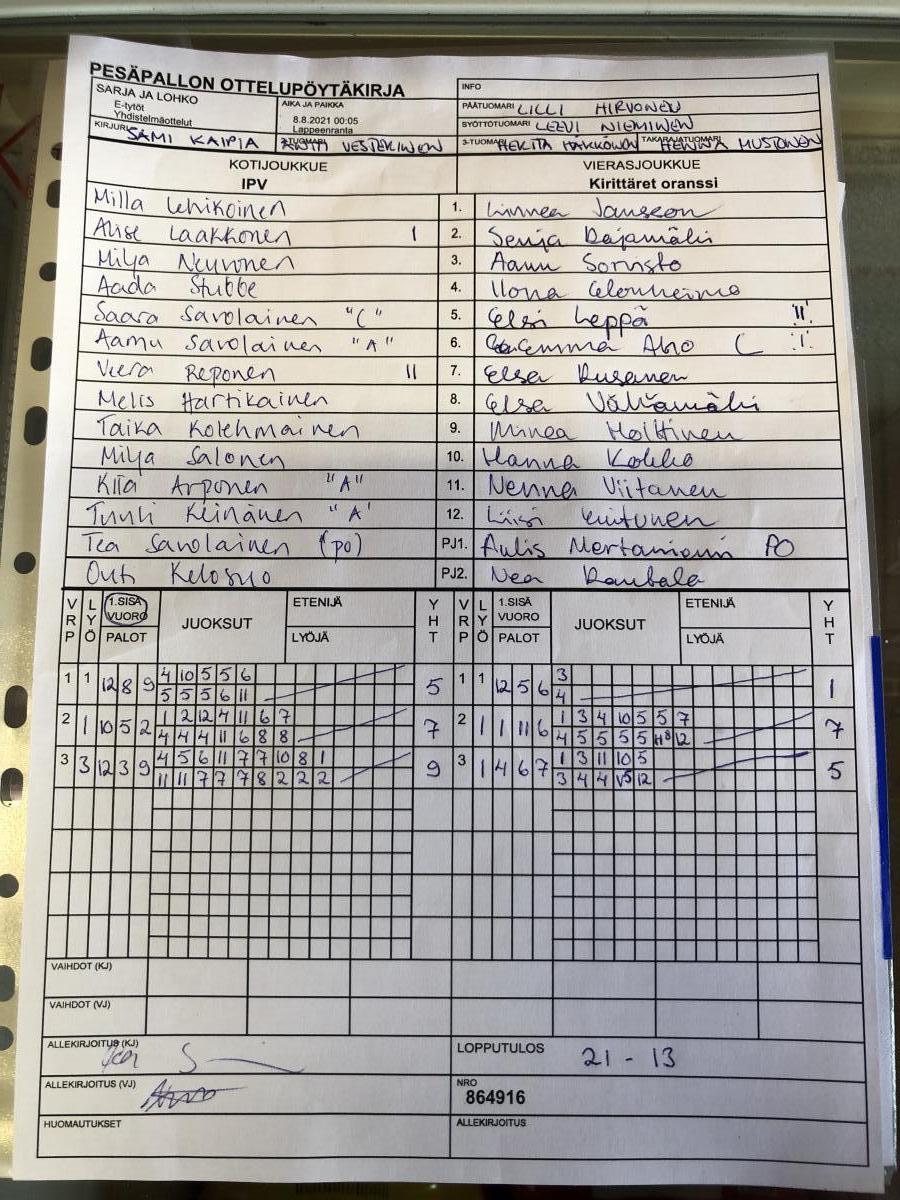 PESÄPALLON OTTELUPÖYTÄKIRJA
SARJA JA LOHKO
E-tytöt
Yhdistelmäottelut
AIKA JA PAIKKA
8.8.2021 00:05
Lappeenranta
INFO
PÄÄTUOMARI LILLI HIRVONEN
SYÖTTÖTUOMARI LEEVI NIEMINEN
KIRJURI SAMI KAIPIA
2-TUOMARI VESTERINEN
3-TUOMARI TAKARAJATUOMARI HENNA MUSTONEN
KOTIJOUKKUE
IPV
VIERASJOUKKUE
Kirittäret oranssi
Milla Lehikoinen 1. Linnea Jansson
Alise Laakkonen I 2. Senja Rajamäki
Milja Neuvonen 3. Aamu Sorvisto
Aada Stubbe 4. Ilona
Saara Savolainen "C" 5. Elsi Leppä "II"
Aamu Savolainen "A" 6. Emma Aho C I
Veera Reponen II 7. Elsa Rusanen
Melis Hartikainen 8. Elsa Välimäki
Taika Kolehmainen 9. Minea Holttinen
Milja Salonen 10. Hanna Kokko
Kiia Arponen "A" 11. Nenna Viitanen
Tuuli Keinänen "A" 12. Liisi
Tea Savolainen (po) PJ1. Aulis Mertaniemi PO
Outi Kelosuo PJ2. Nea Rautala
VRP LYÖ 1.SISÄ VUORO PALOT JUOKSUT ETENIJÄ LYÖJÄ YHT VRP LYÖ 1.SISÄ VUORO PALOT JUOKSUT ETENIJÄ LYÖJÄ YHT
1 1 12 8 9 4 10 5 5 6 5 1 1 12 5 6 3 1
5 5 5 6 11 4
2 1 10 5 2 1 2 12 4 11 6 7 7 2 1 1 11 6 1 3 4 10 5 5 7 7
4 4 4 11 6 8 8 4 5 5 5 5 12
3 3 12 3 9 4 5 6 11 7 7 10 8 1 9 3 1 4 6 7 1 3 11 10 5 5
11 11 7 7 7 8 2 2 2 3 4 4 5 12
VAIHDOT (KJ)
VAIHDOT (VJ)
ALLEKIRJOITUS (KJ)
LOPPUTULOS 21 - 13
ALLEKIRJOITUS (VJ)
NRO
864916
HUOMAUTUKSET
ALLEKIRJOITUS